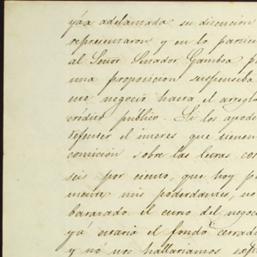 yáa adelantada su discucion
representaron y en lo partic
al Señor Senador Gamboa p
una proposicion suspensiba
me negocio hasta el arregl
crédito publico. Si los apode
defender el interes que tienen
comicion sobre las letras con
seis por ciento, que hoy p
mente mis poderdantes, no
barazado el curso del negoc
yá estaria el fondo cerrad
y nó nos hallariamos